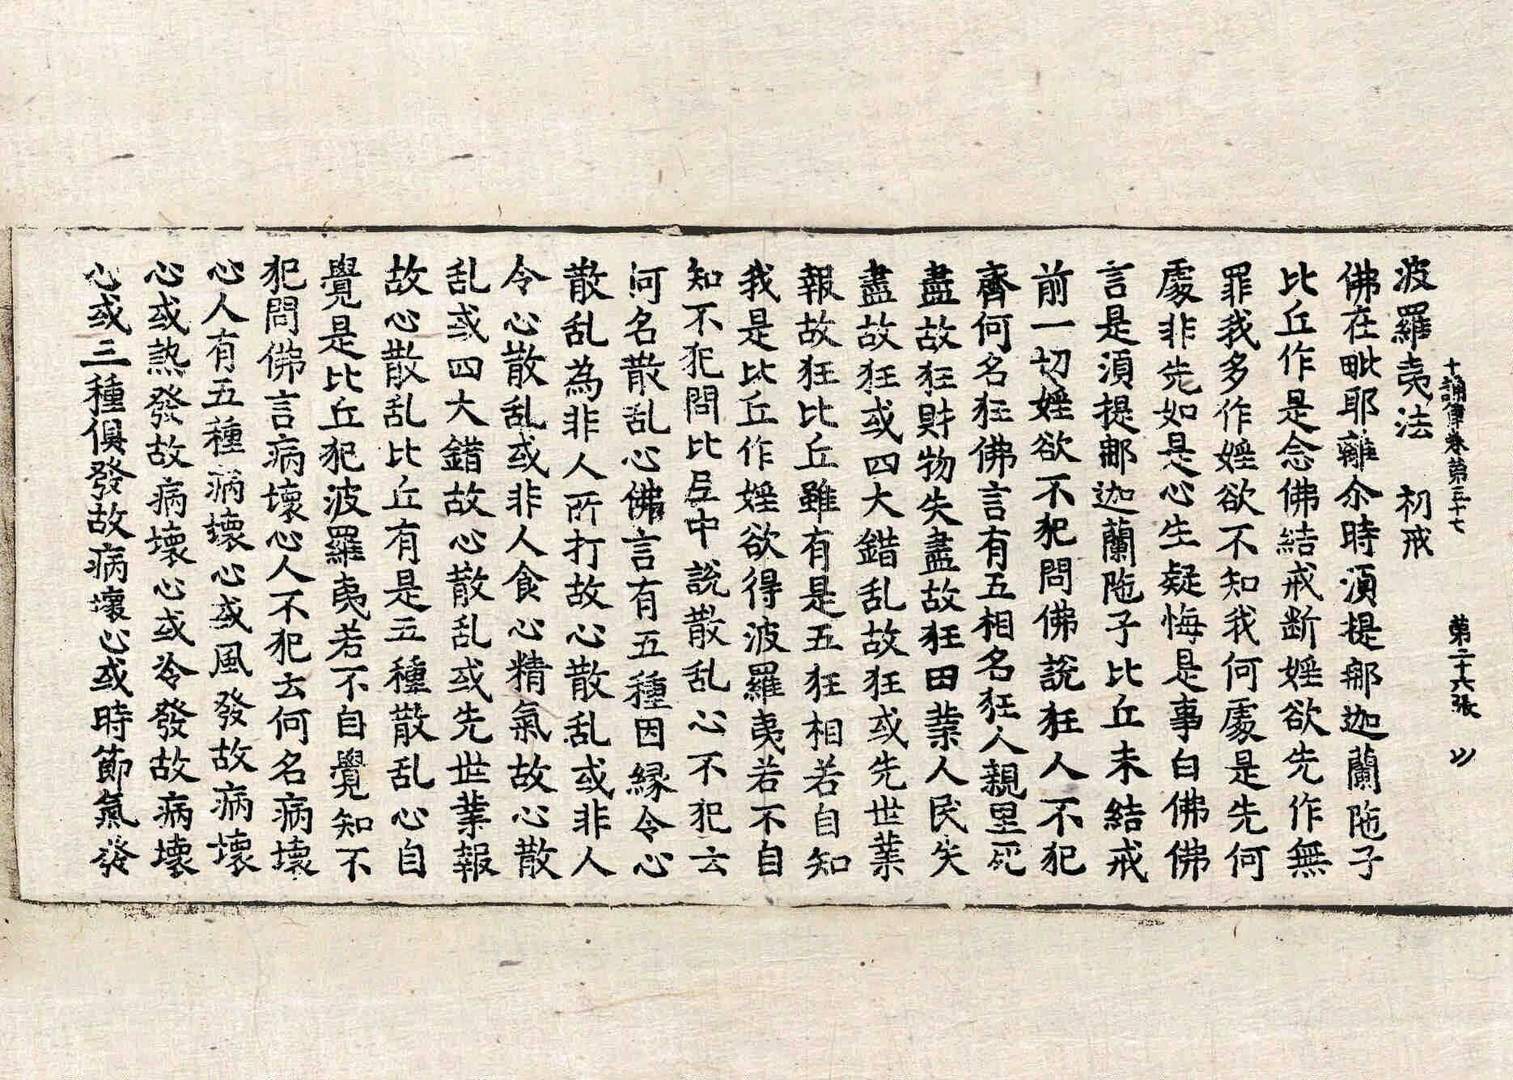 十誦律卷第三十七　第二十六張　以
波羅夷法　初戒
佛在毗耶離尒時湏提那迦蘭陁子
比丘作是念佛結戒断婬欲先作無
罪我多作婬欲不知我何處是先何
處非先如是心生疑悔是事白佛佛
言是湏提那迦蘭陁子比丘未結戒
前一切婬欲不犯問佛說狂人不犯
齊何名狂佛言有五相名狂人親里死
盡故狂財物失盡故狂田業人民失
盡故狂或四大錯乱故狂或先世業
報故狂比丘雖有是五狂相若自知
我是比丘作婬欲得波羅夷若不自
知不犯問比丘中說散乱心不犯云
何名散乱心佛言有五種因緣令心
散乱為非人所打故心散乱或非人
令心散乱或非人食心精氣故心散
乱或四大錯故心散乱或先世業報
故心散乱比丘有是五種散乱心自
覺是比丘犯波羅夷若不自覺知不
犯問佛言病壞心人不犯云何名病壞
心人有五種病壞心或風發故病壞
心或熱發故病壞心或冷發故病壞
心或三種俱發故病壞心或時節氣發